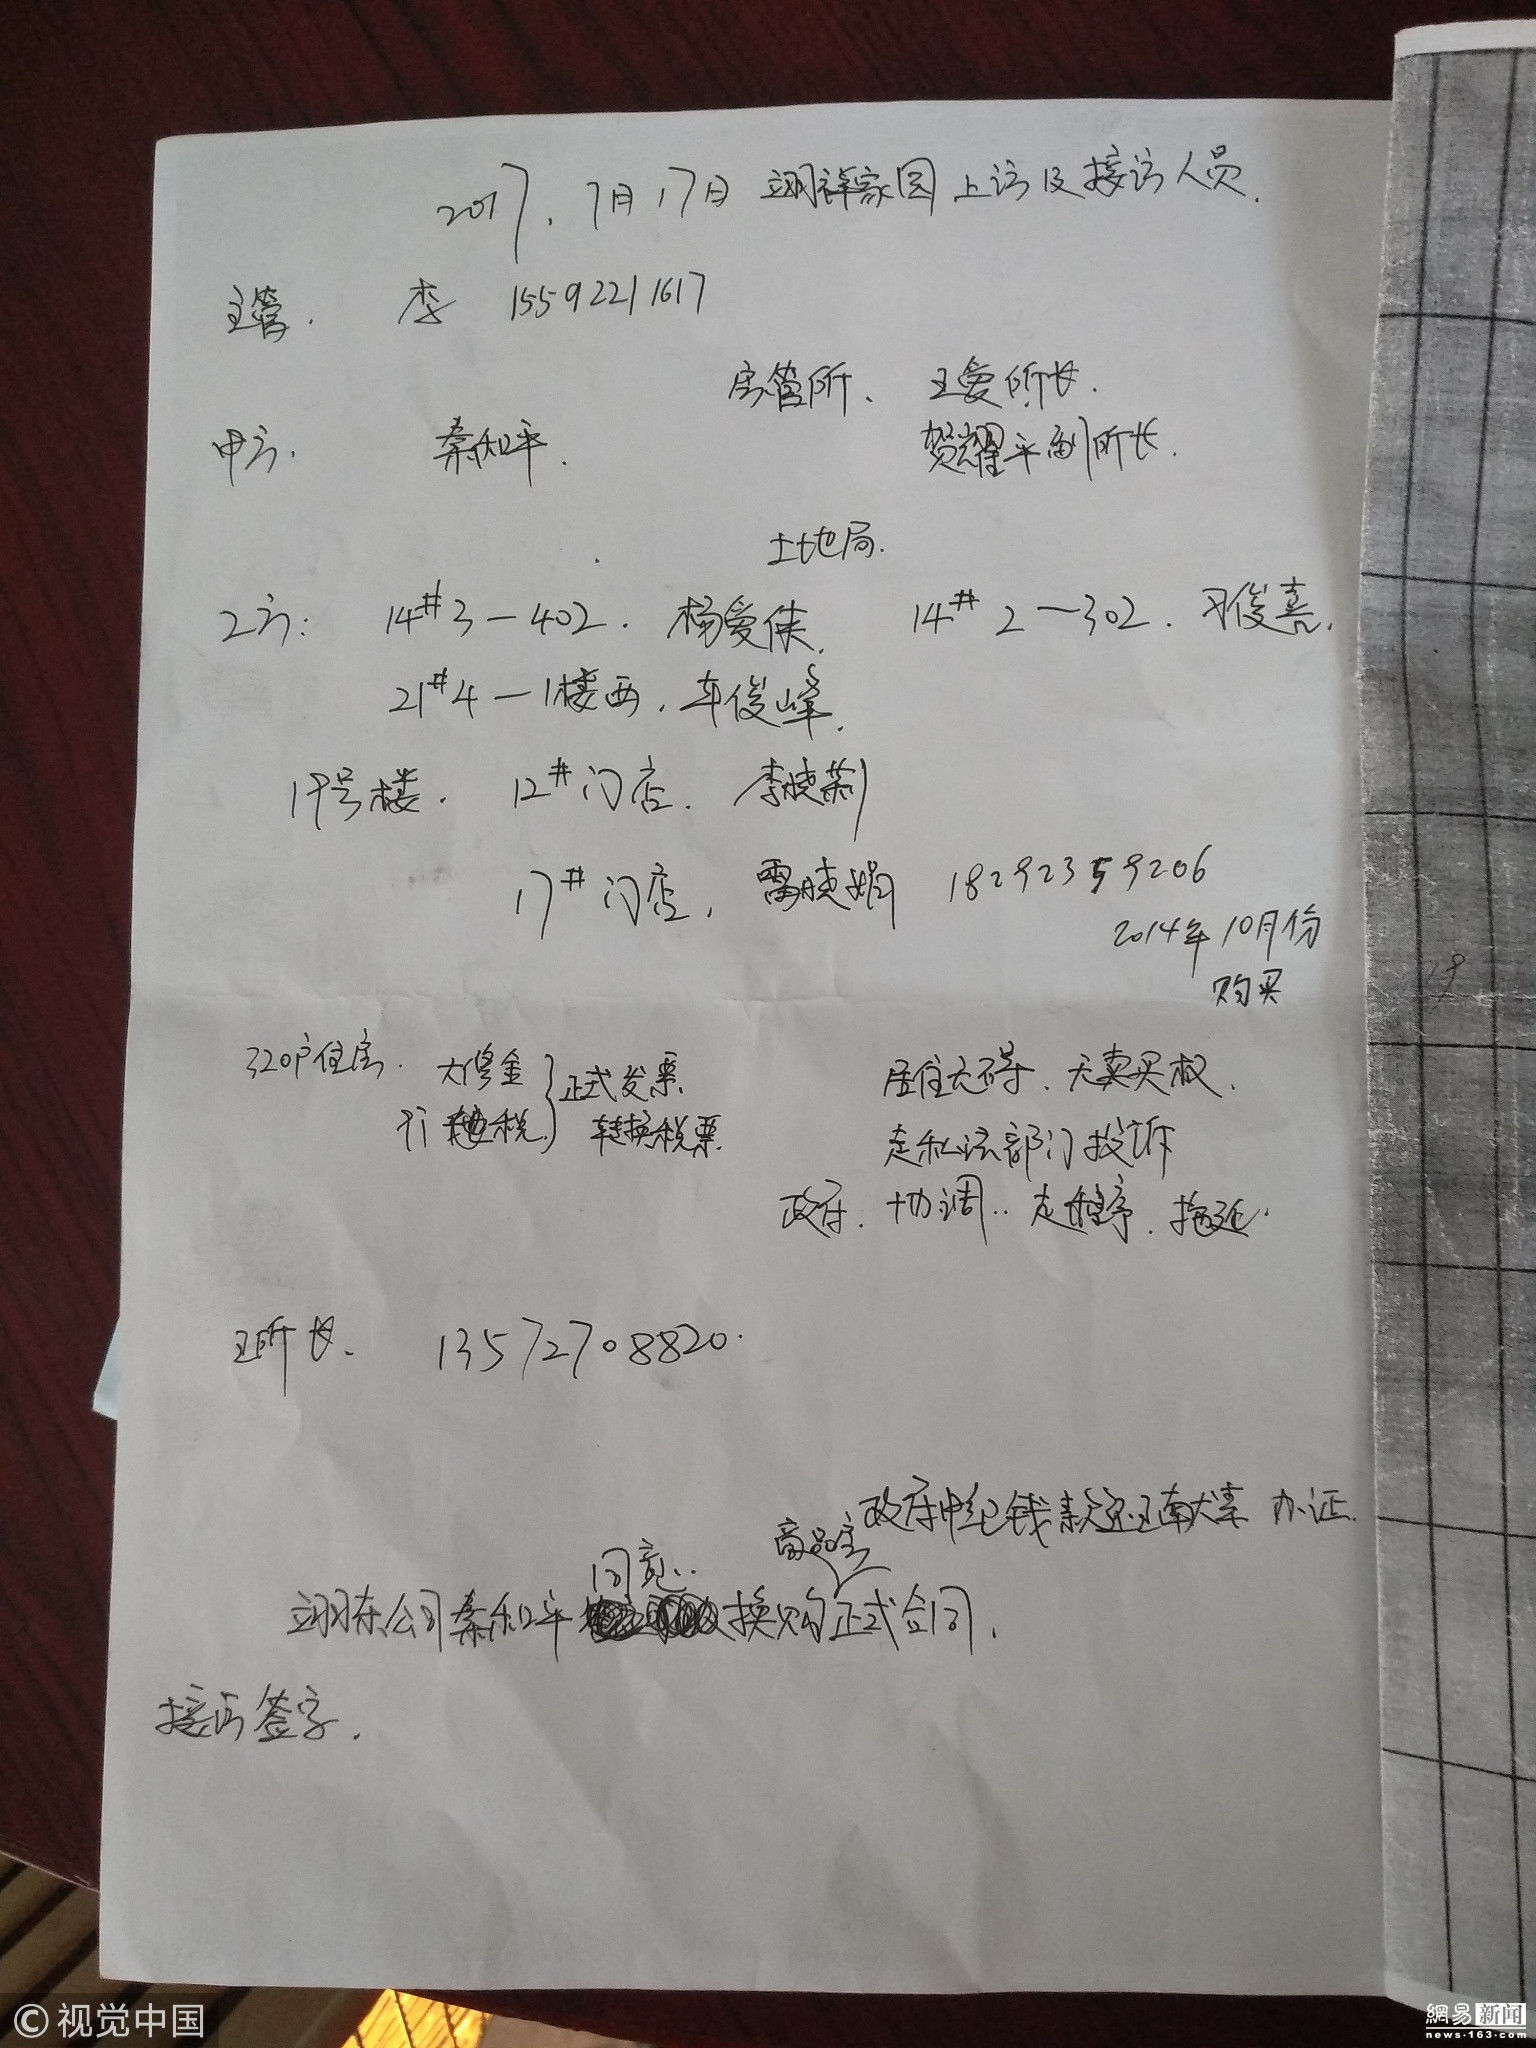 2017.7月17日 翊祥家园上访及接访人员.
主管. 李 15592211617
房管所、 王爱所长.
甲方. 秦和平. 贺耀平副所长.
土地局.
2方: 14#3-402. 杨爱侠. 14#2-302. 习俊喜.
21#4-1楼西. 车俊峰.
19号楼. 12#门店. 李晓莉
17#门店, 雷晓娟 18292359206
2014年10月份
购买
320户住房. 大修金 正式发票 居住无碍. 无卖买权.
税. 转换税票 走私法部门投诉
政府. 协调.. 走程序. 拖延.
王所长. 13572708820.
政府 钱款还 办证.
同意.. 商品房
翊东公司秦和平 换购正式合同.
接访签字.
19
© 视觉中国
網易新闻
news.163.com